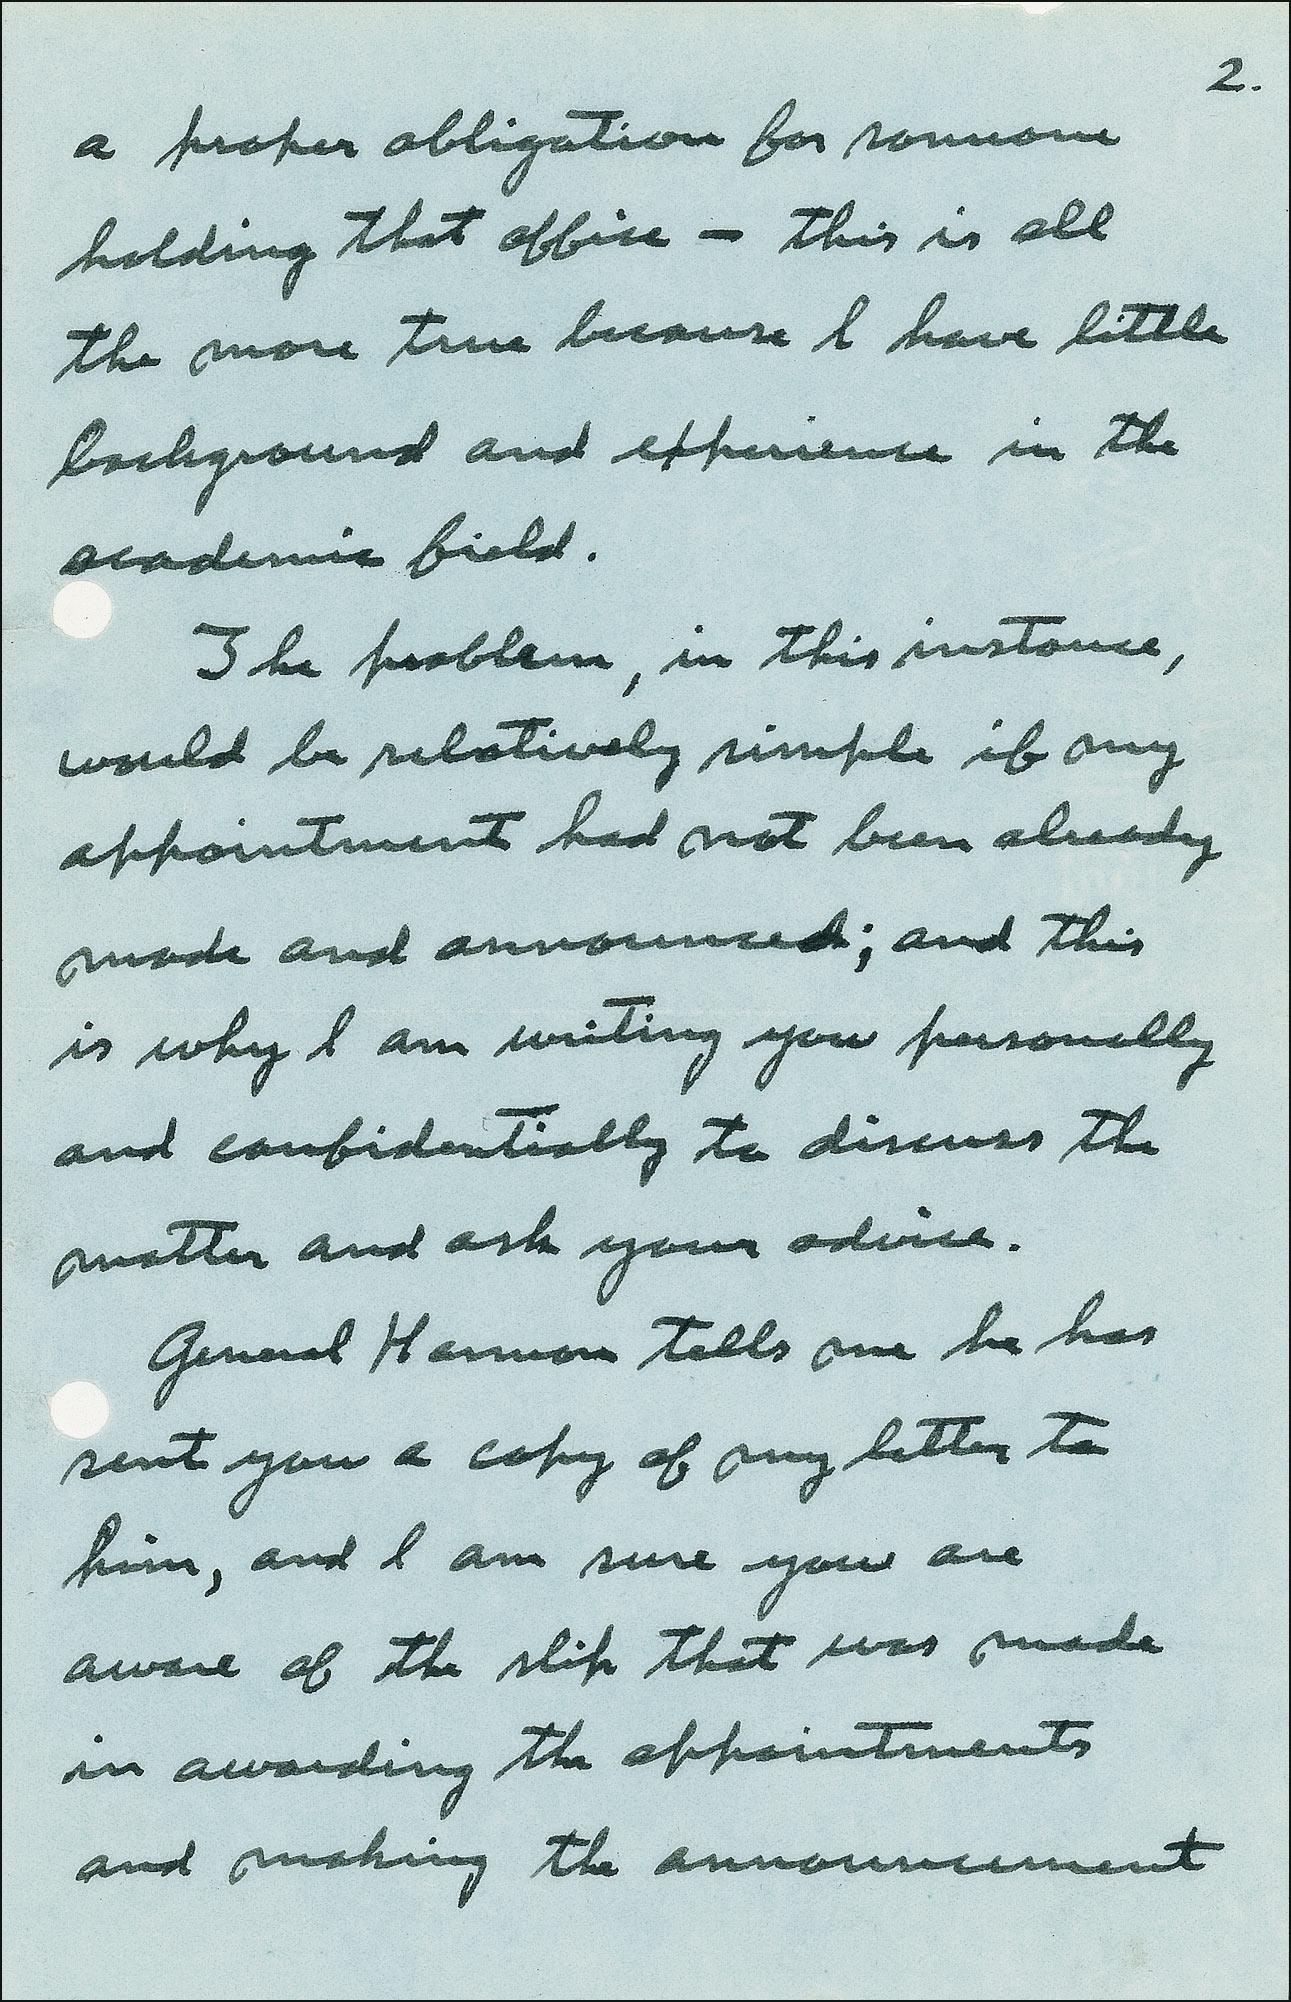 2.
a proper obligation for someone
holding that office — this is all
the more true because I have little
background and experience in the
academic field.
The problem, in this instance,
would be relatively simple if my
appointment had not been already
made and announced; and this
is why I am writing you personally
and confidentially to discuss the
matter and ask your advice.
General Harmon tells me he has
sent you a copy of my letter to
him, and I am sure you are
aware of the slip that was made
in awarding the appointments
and making the announcement